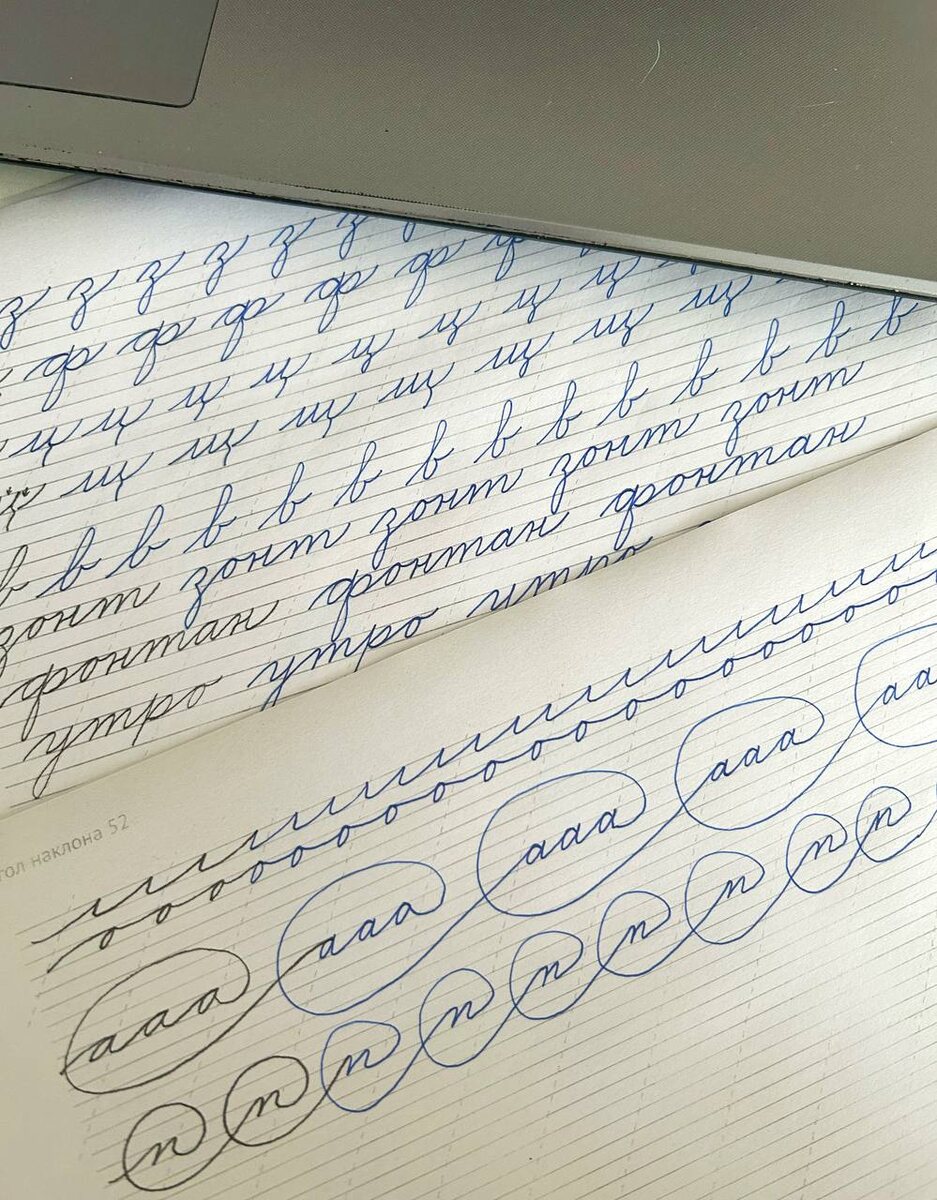 з з з з з з
ф ф ф ф ф ф
ц ц ц ц ц ц ц ц
щ щ щ щ щ щ щ щ
в в в в в в в в в в в в в в
зонт зонт зонт зонт зонт
фонтан фонтан фонтан
утро утро утро
гол наклона 52
о о о о о о о о о о о о о о о о о о о о о
ааа ааа ааа ааа аа
п п п п п п п п п